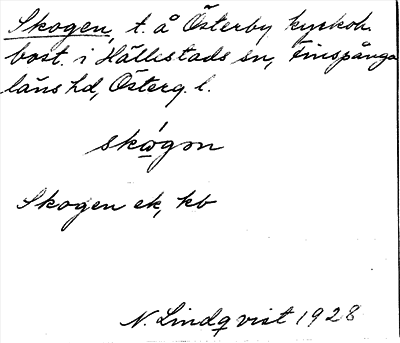 Skogen, t. å Österby kyrkoh.
bost. i Hällestads sn, Finspånga
läns hd, Österg. l.
skógon
Skogen ek, kb
N. Lindqvist 1928